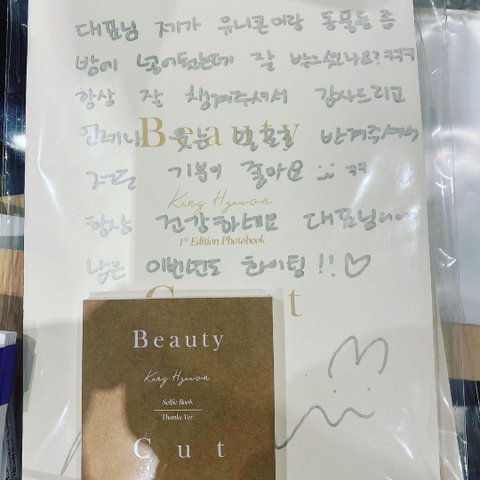 대표님 제가 유니콘이랑 동물동 종
방에 넣어뒀는데 잘 받으셨나요?ㅋㅋ
항상 잘 챙겨주셔서 감사드리고
언제나 웃는 얼굴로 반겨주셔서
Beauty
저도 기분이 좋아요 ㅋㅋ
Kang Hyewon
항상 건강하세요 대표님
1st Edition Photobook
남은 이번년도 화이팅!!♡
Cut
Beauty
Kang Hyewon
Selfie Book
Thanks Ver.
Cut